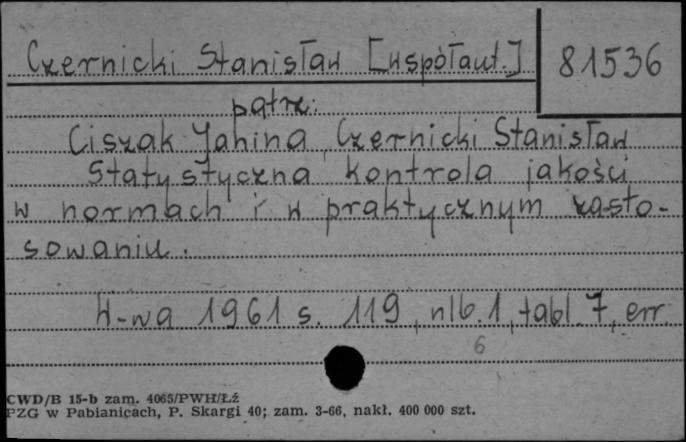 Czernicki Stanisław [współaut.] 81536
patrz:
Ciszak Janina, Czernicki Stanisław
Statystyczna kontrola jakości
w normach i w praktycznym zasto-
sowaniu.
W-wa 1961 s. 119, nlb. 1, tabl. 7, err.
6
CWD/B 15-b zam. 4065/PWH/Łź
PZG w Pabianicach, P. Skargi 40; zam. 3-66, nakł. 400 000 szt.